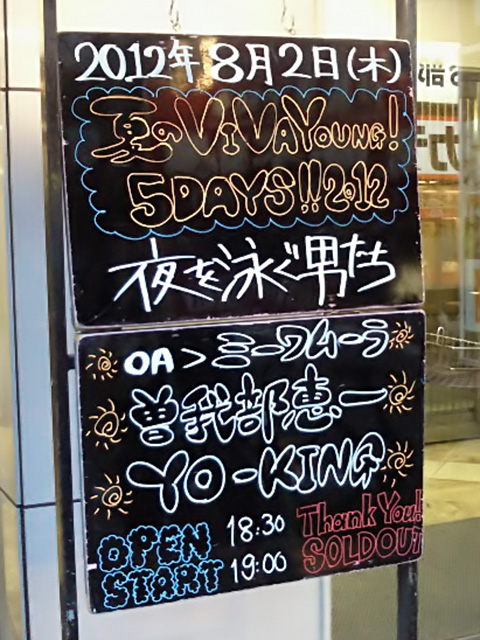 2012年 8月2日(木)
夏のViVA YOUNG!
5DAYS!! 2012
夜を泳ぐ男たち
OA > ミーワムーラ
曽我部恵一
YO-KING
OPEN 18:30
START 19:00
Thank You!
SOLDOUT